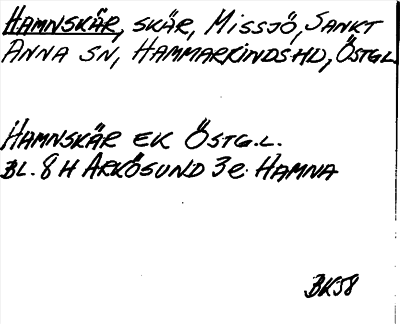 HAMNSKÄR, SKÄR, MISSJÖ, SANKT
ANNA SN, HAMMARKINDS HD, ÖSTGL.
HAMNSKÄR EK ÖSTG.L.
BL. 8 H ARKÖSUND 3e HAMNA
BK58